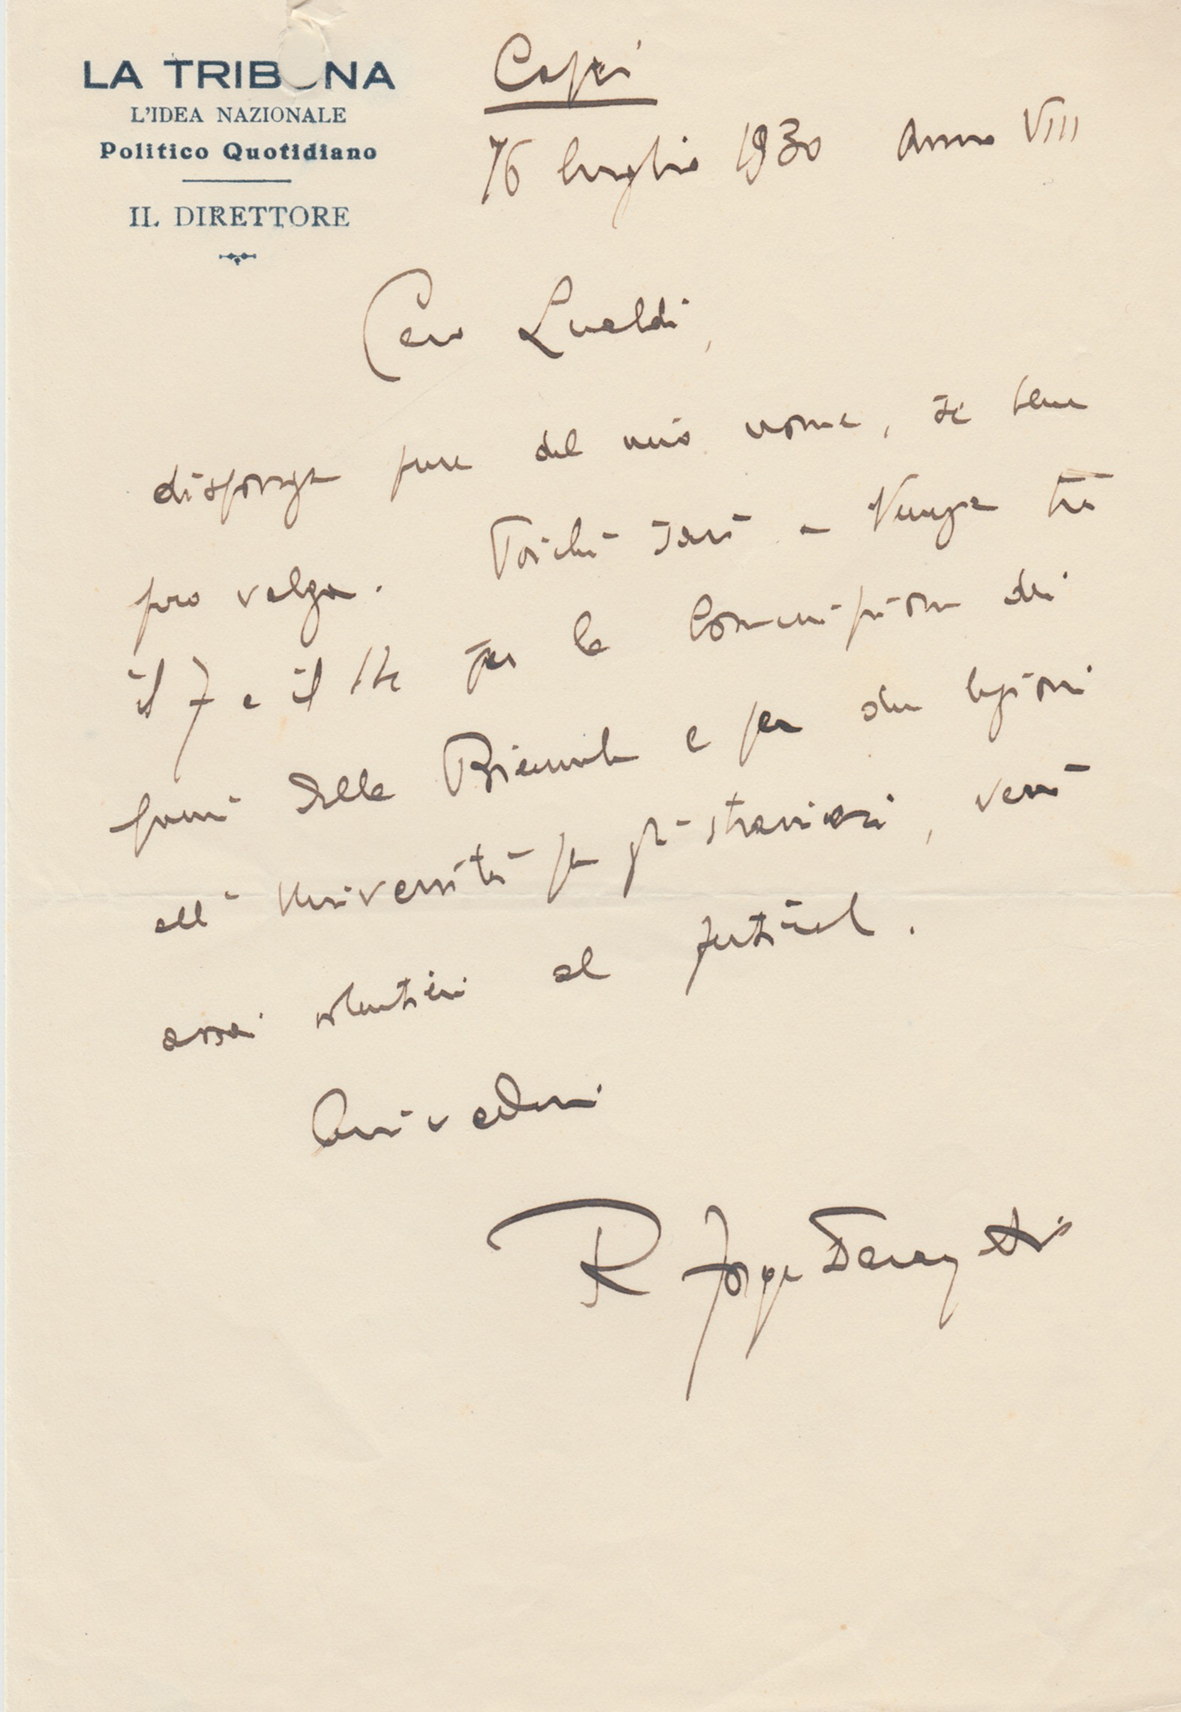 LA TRIBUNA
L'IDEA NAZIONALE
Politico Quotidiano
IL DIRETTORE
Capri
16 luglio 1930 Anno VIII
Caro Lualdi,
disponga pure del mio nome, se bene
può valga. Poiché sarò a Venezia tra
il 7 e il 14 per la Commissione dei
premi della Biennale e per due lezioni
all'Università per gli stranieri, verrò
assai volentieri al festival.
Arrivederci
R Forges Davanzati